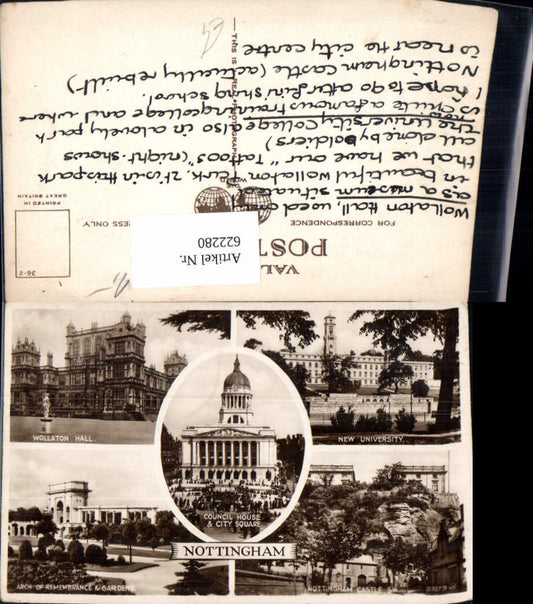 Wollaton Hall, used
as a museum situated
in beautiful Wollaton Park. It's in this park
that we have our "Tattoos" (night-shows
all done by soldiers)
The University College also in a lovely park
is quite a famous training college and where
I hope to go after finishing school.
Nottingham Castle (actually rebuilt)
is near the city centre
THIS IS A REAL PHOTOGRAPH
THE
WORLD
FOR CORRESPONDENCE
POST
VAL
ADDRESS ONLY
PRINTED IN
GREAT BRITAIN
36-2
Artikel Nr.
622280
WOLLATON HALL.
NEW UNIVERSITY.
COUNCIL HOUSE
& CITY SQUARE
NOTTINGHAM
ARCH OF REMEMBRANCE & GARDENS.
NOTTINGHAM CASTLE S.W.